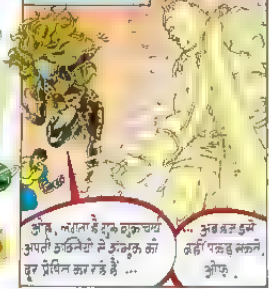 ओह, लगता है शुक्र शुक्राचार्य
अपनी शक्तियों से शंभूक को
दूर प्रेषित कर रहे हैं ...
... अब हम इसे
नहीं पकड़ सकते,
ओफ